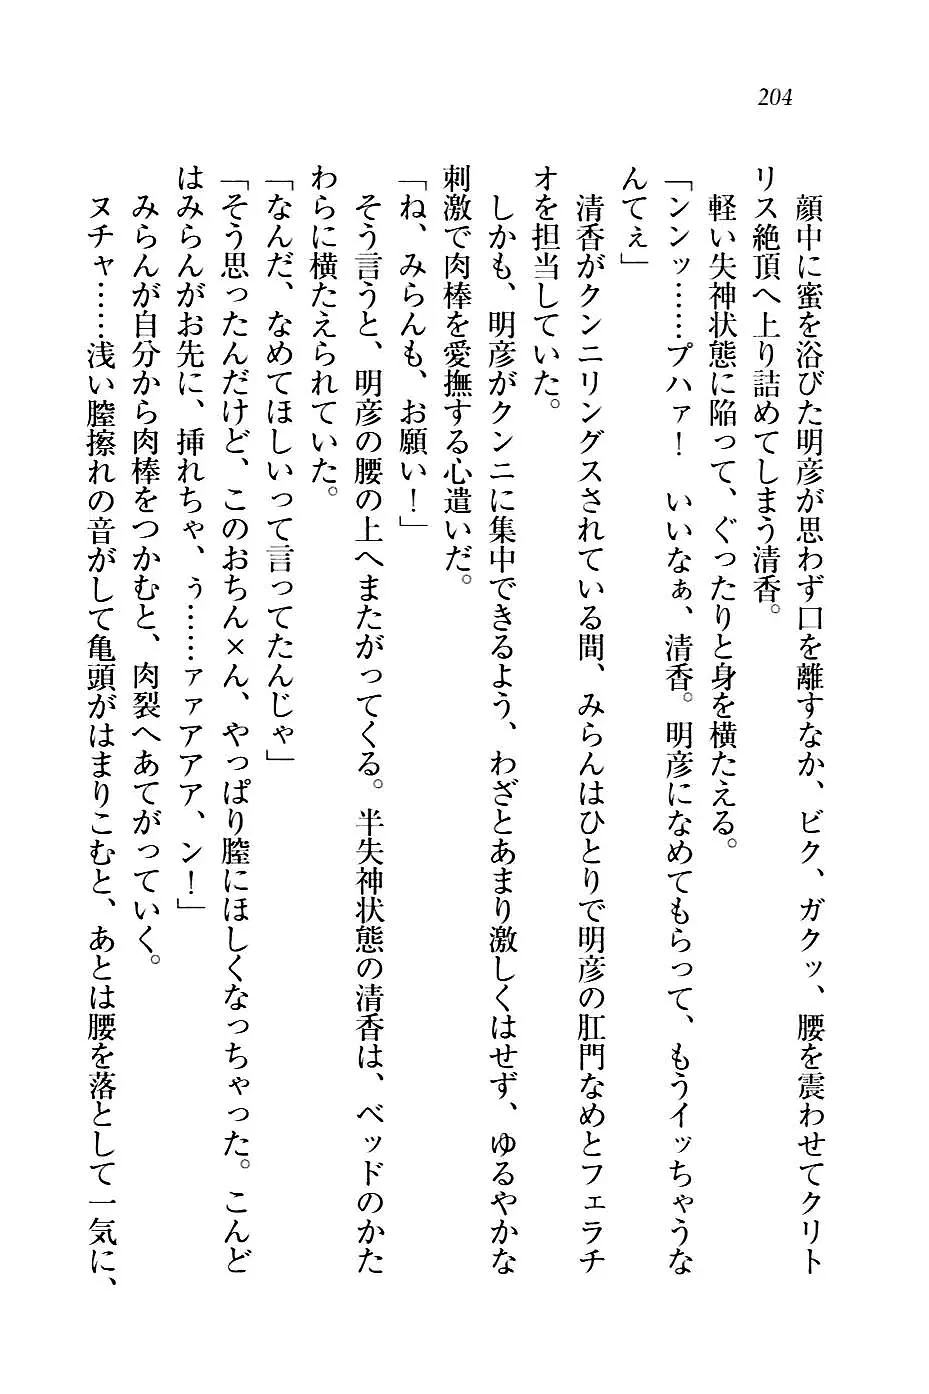 204
顔中に蜜を浴びた明彦が思わず口を離すなか、ビク、ガクッ、腰を震わせてクリト
リス絶頂へ上り詰めてしまう清香。
軽い失神状態に陥って、ぐったりと身を横たえる。
「ンンッ……プハァ！　いいなぁ、清香。明彦になめてもらって、もうイッちゃうな
んてぇ」
清香がクンニリングスされている間、みらんはひとりで明彦の肛門なめとフェラチ
オを担当していた。
しかも、明彦がクンニに集中できるよう、わざとあまり激しくはせず、ゆるやかな
刺激で肉棒を愛撫する心遣いだ。
「ね、みらんも、お願い！」
そう言うと、明彦の腰の上へまたがってくる。半失神状態の清香は、ベッドのかた
わらに横たえられていた。
「なんだ、なめてほしいって言ってたんじゃ」
「そう思ったんだけど、このおちん×ん、やっぱり膣にほしくなっちゃった。こんど
はみらんがお先に、挿れちゃ、ぅ……ァァアアア、ン！」
みらんが自分から肉棒をつかむと、肉裂へあてがっていく。
ヌチャ……浅い膣擦れの音がして亀頭がはまりこむと、あとは腰を落として一気に、